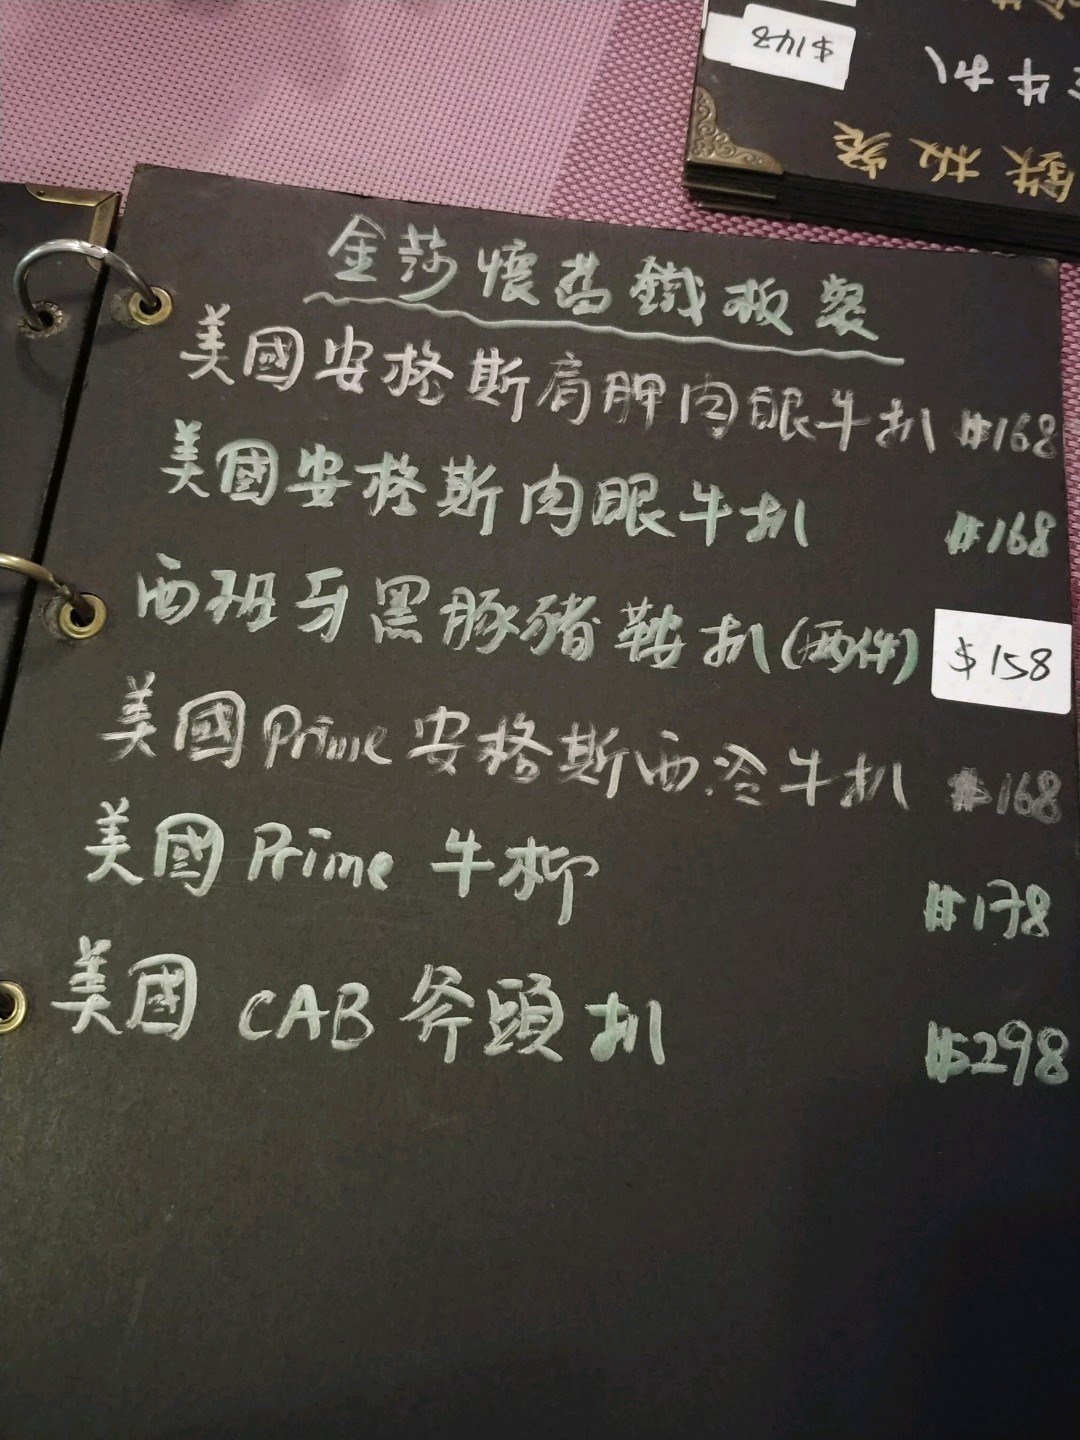 金莎懷舊鐵板餐
美國安格斯肩胛肉眼牛扒 $168
美國安格斯肉眼牛扒 $168
西班牙黑豚豬鞍扒(兩件) $158
美國Prime安格斯西冷牛扒 $168
美國Prime 牛柳 $178
美國 CAB 斧頭扒 $298
$148
牛扒
鉄板餐